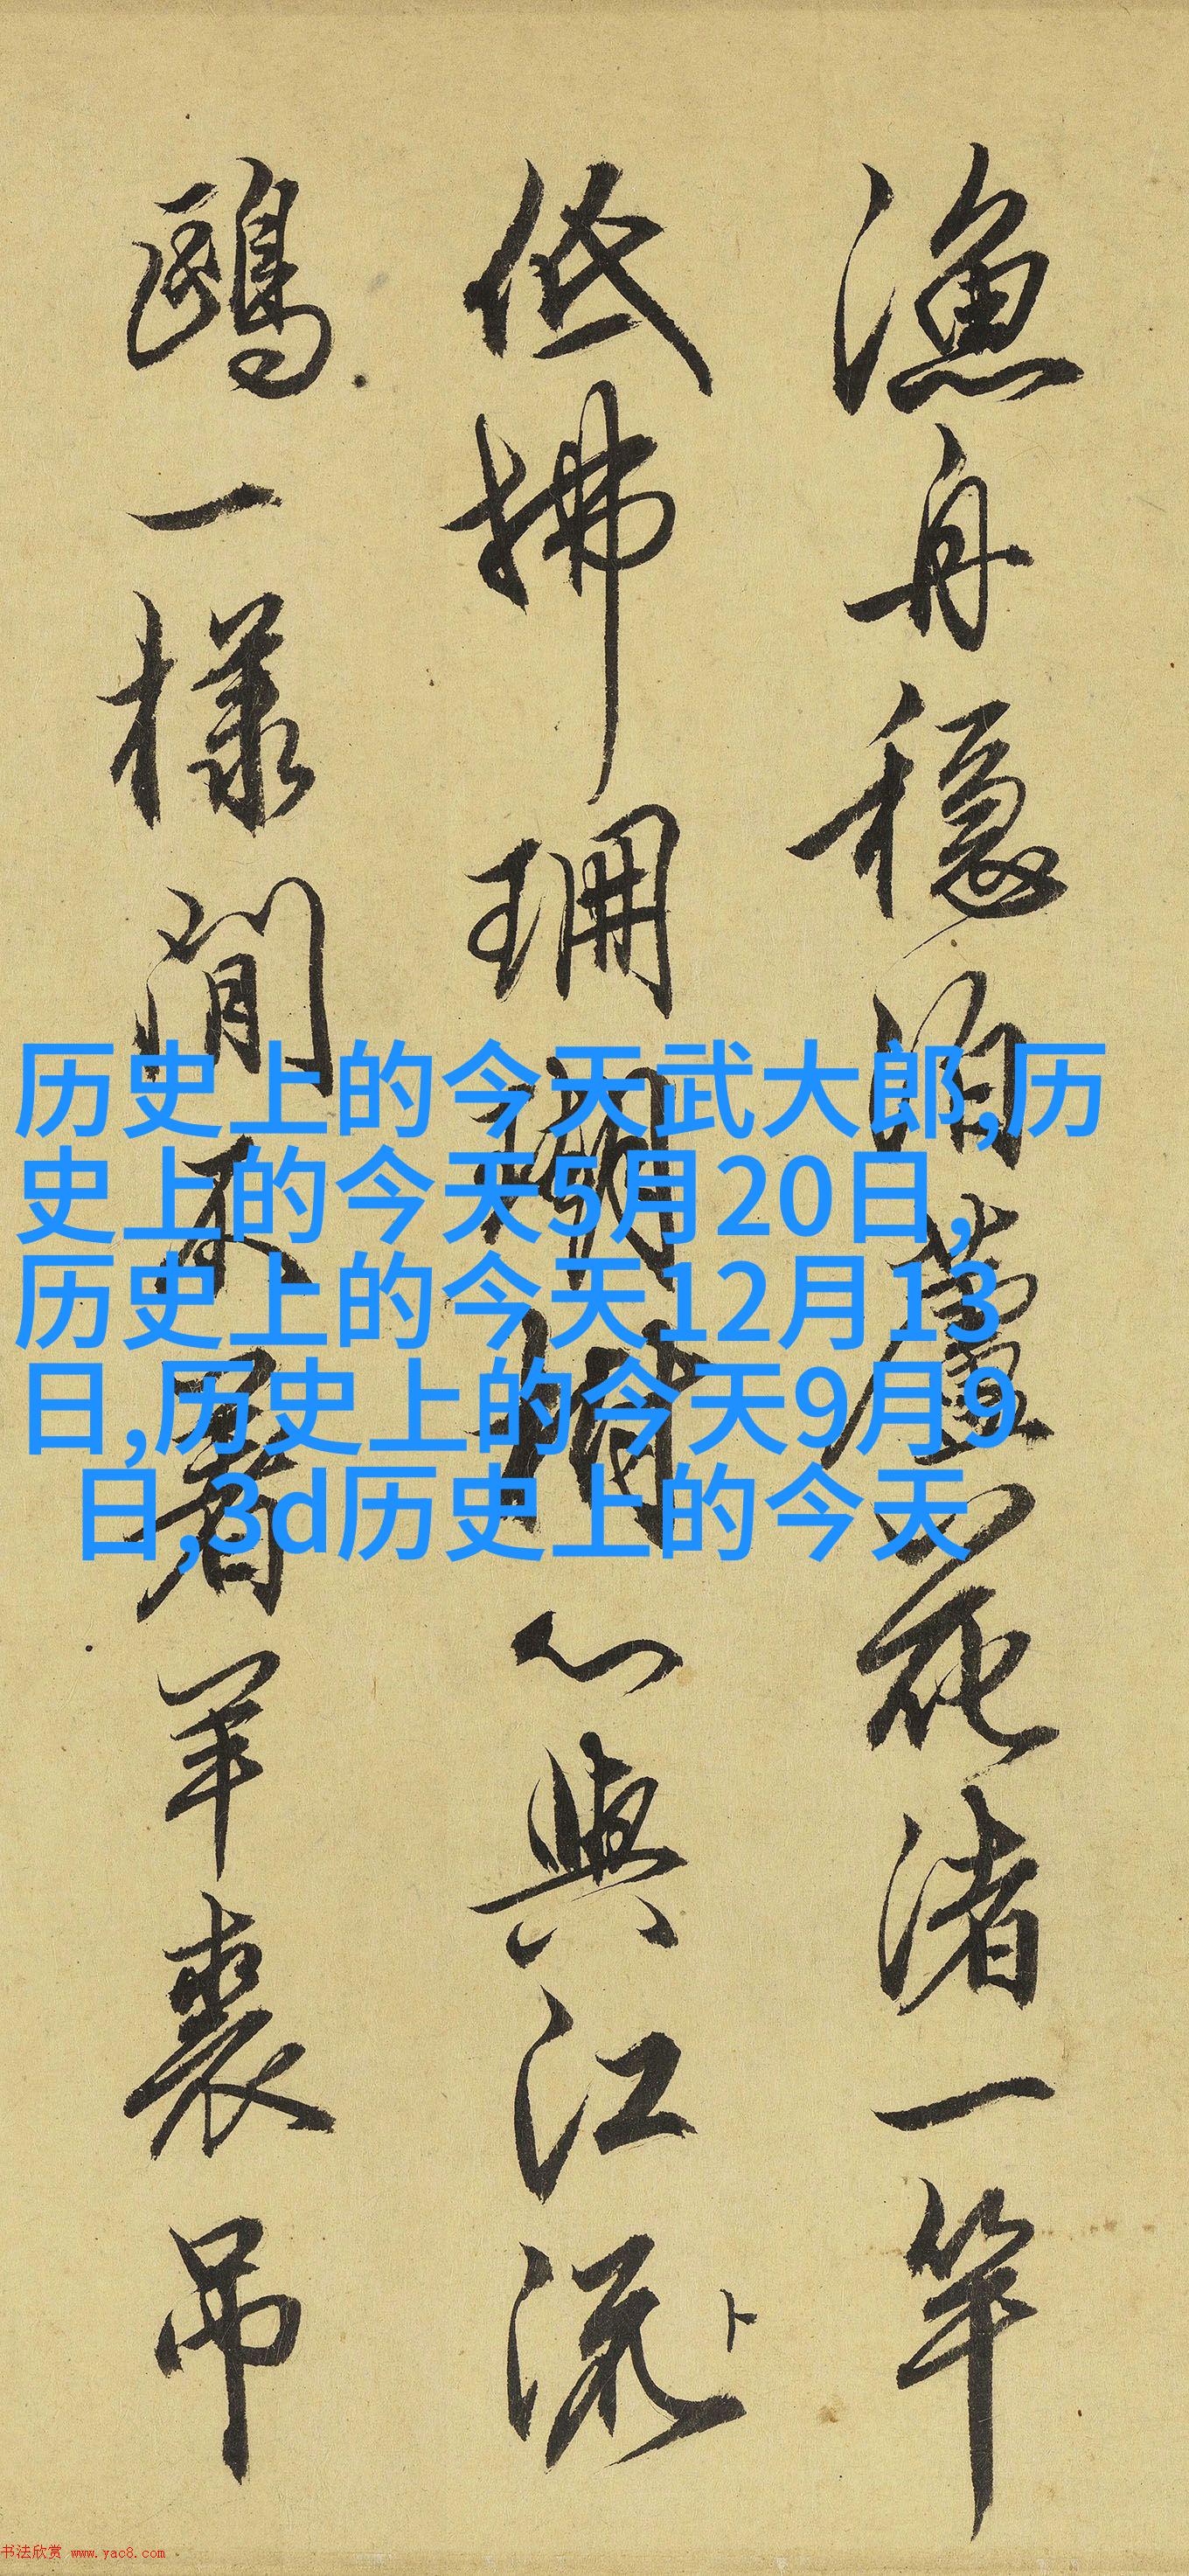 漁舟穩泊蘆花渚一竿
低拂珊瑚樹心與江流
鷗一樣閒不著羊裘吊
卜
历史上的今天武大郎,历
史上的今天5月20日,
历史上的今天12月13
日,历史上的今天9月9
日,3d历史上的今天
书法欣赏 www.yac8.com